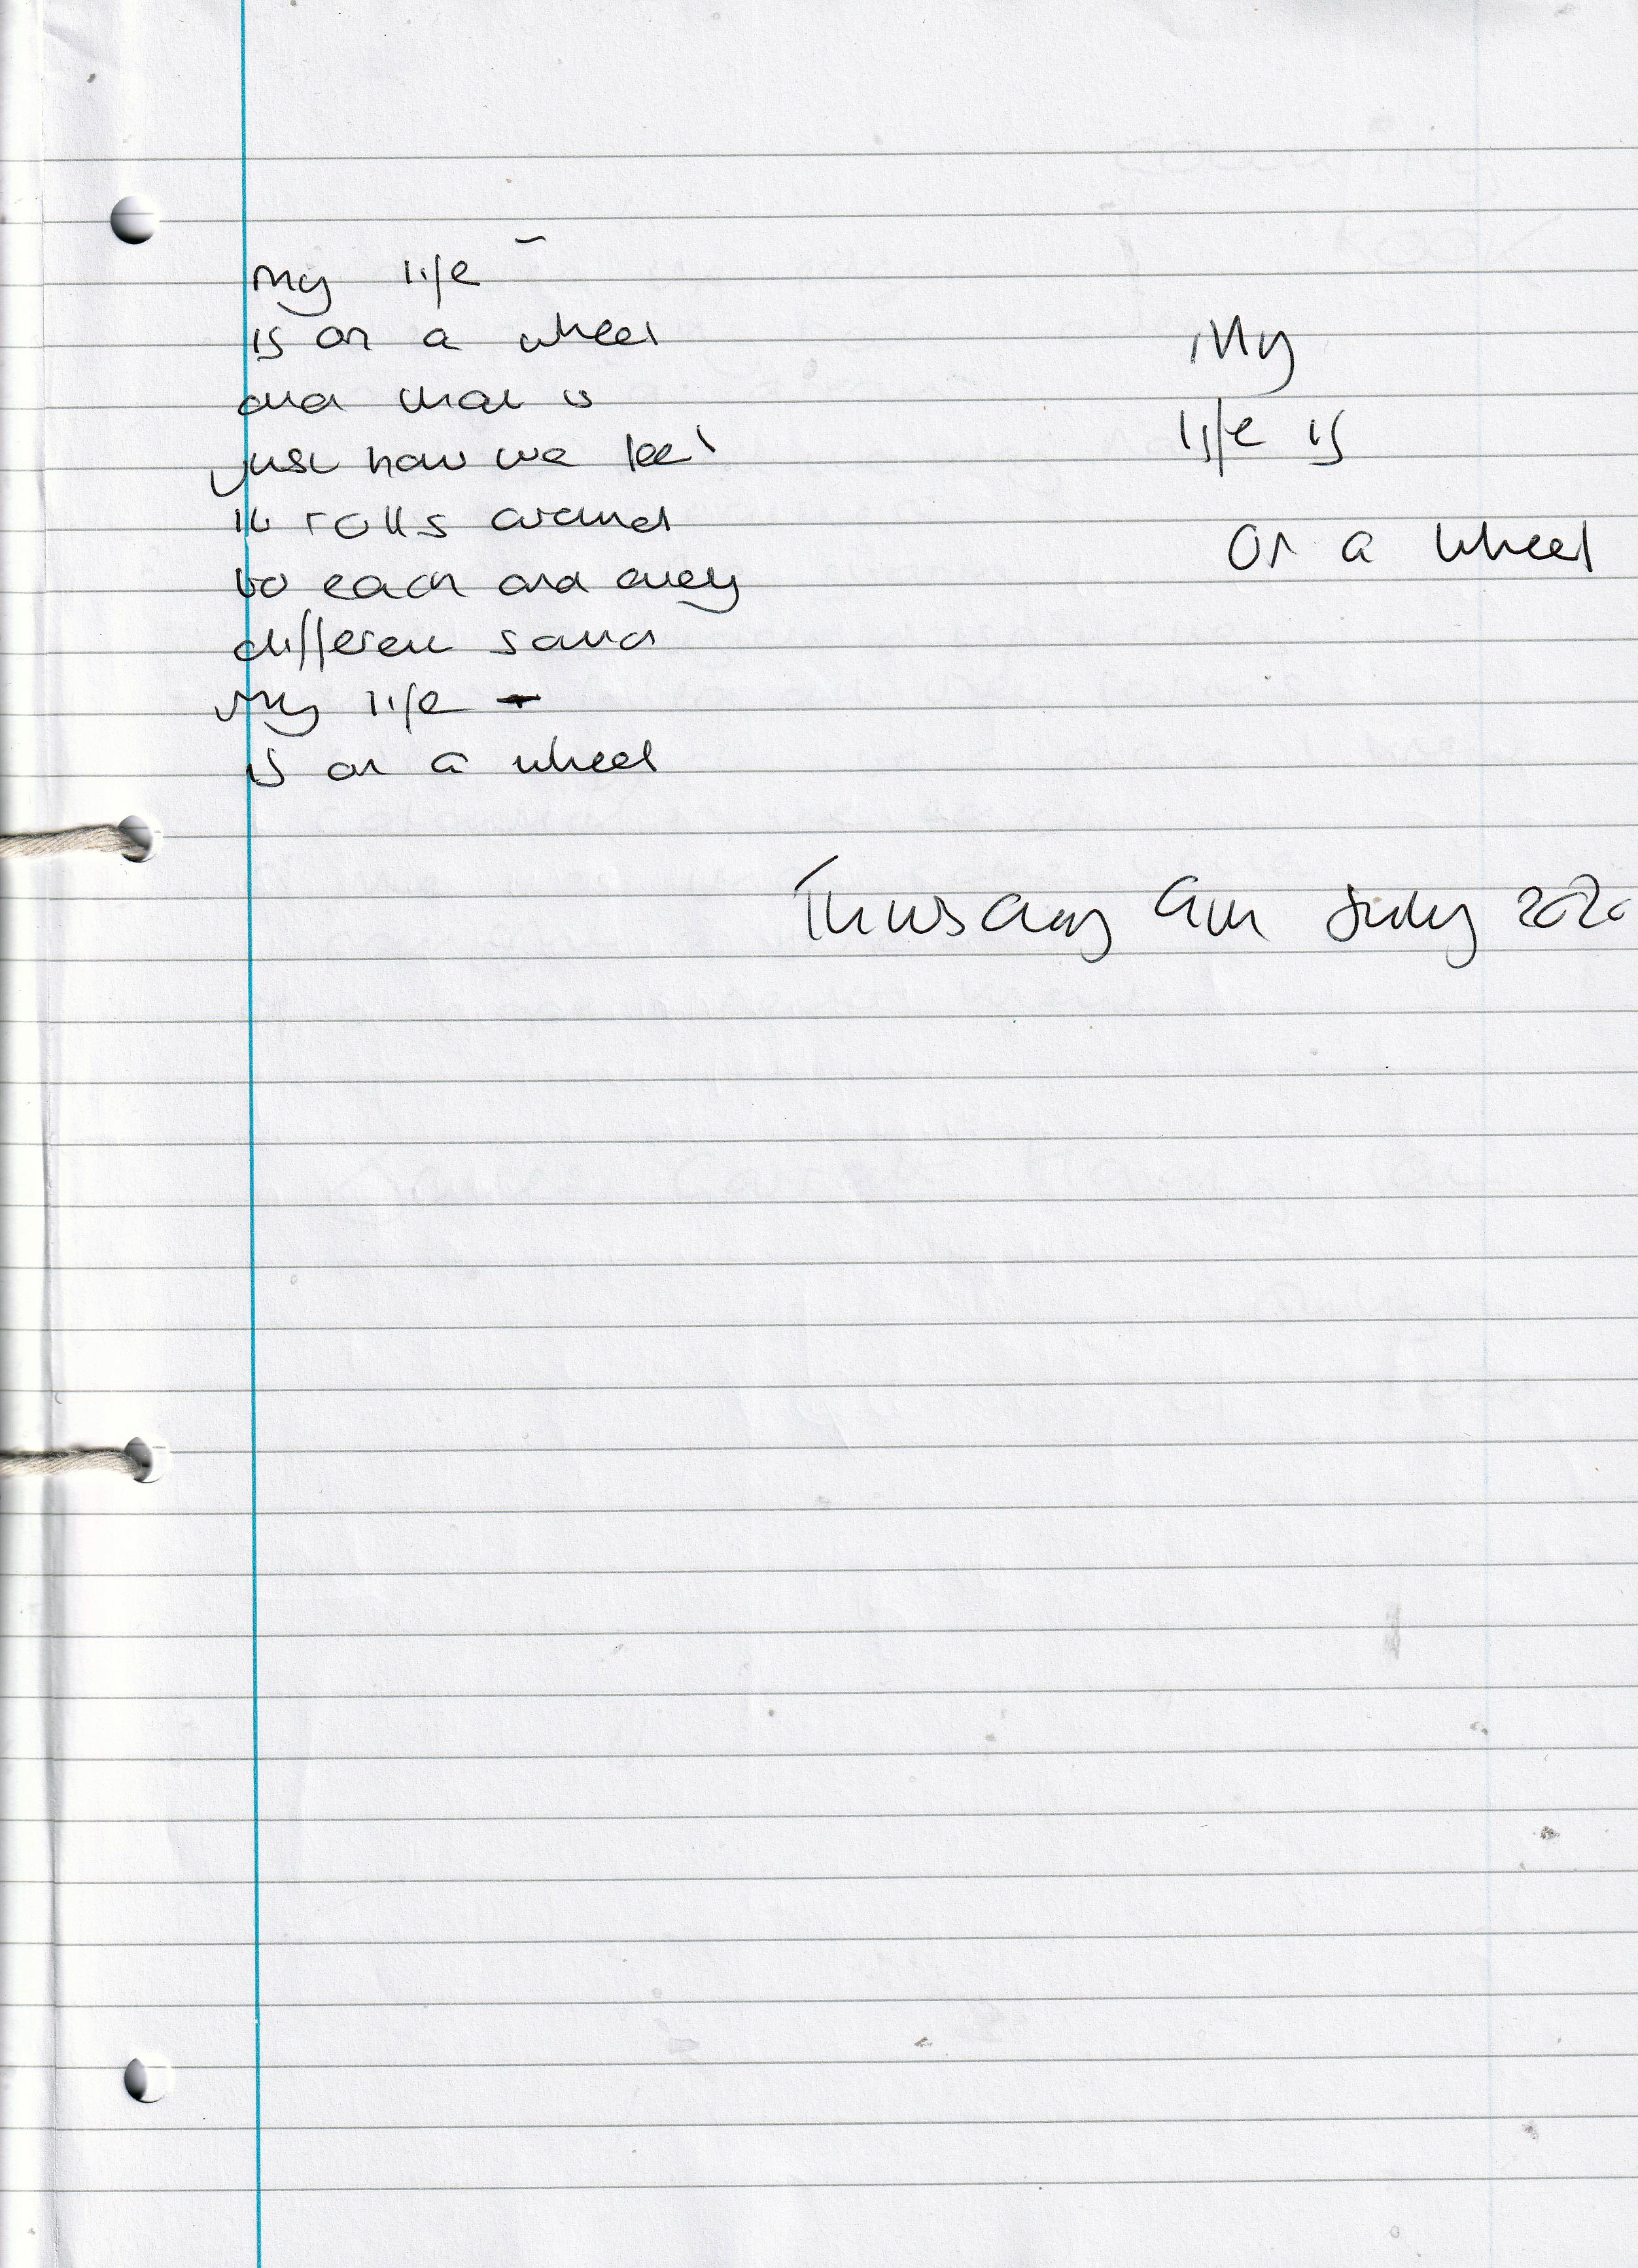 My life -
is on a wheel
and that is
just how we feel
it rolls around
to each and every
different sound
My life -
is on a wheel
My
life is
on a wheel
Thursday 9th July 2020